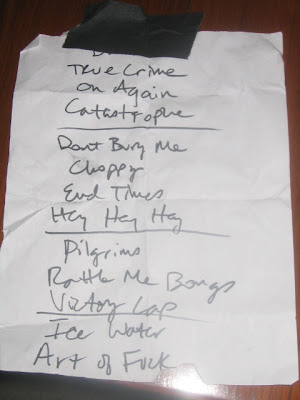 True Crime
On Again
Catastrophe
Dont Bury Me
Choppy
End Times
Hey Hey Hey
Pilgrims
Rattle Me Bongs
Victory Lap
Ice Water
Art of Fuck